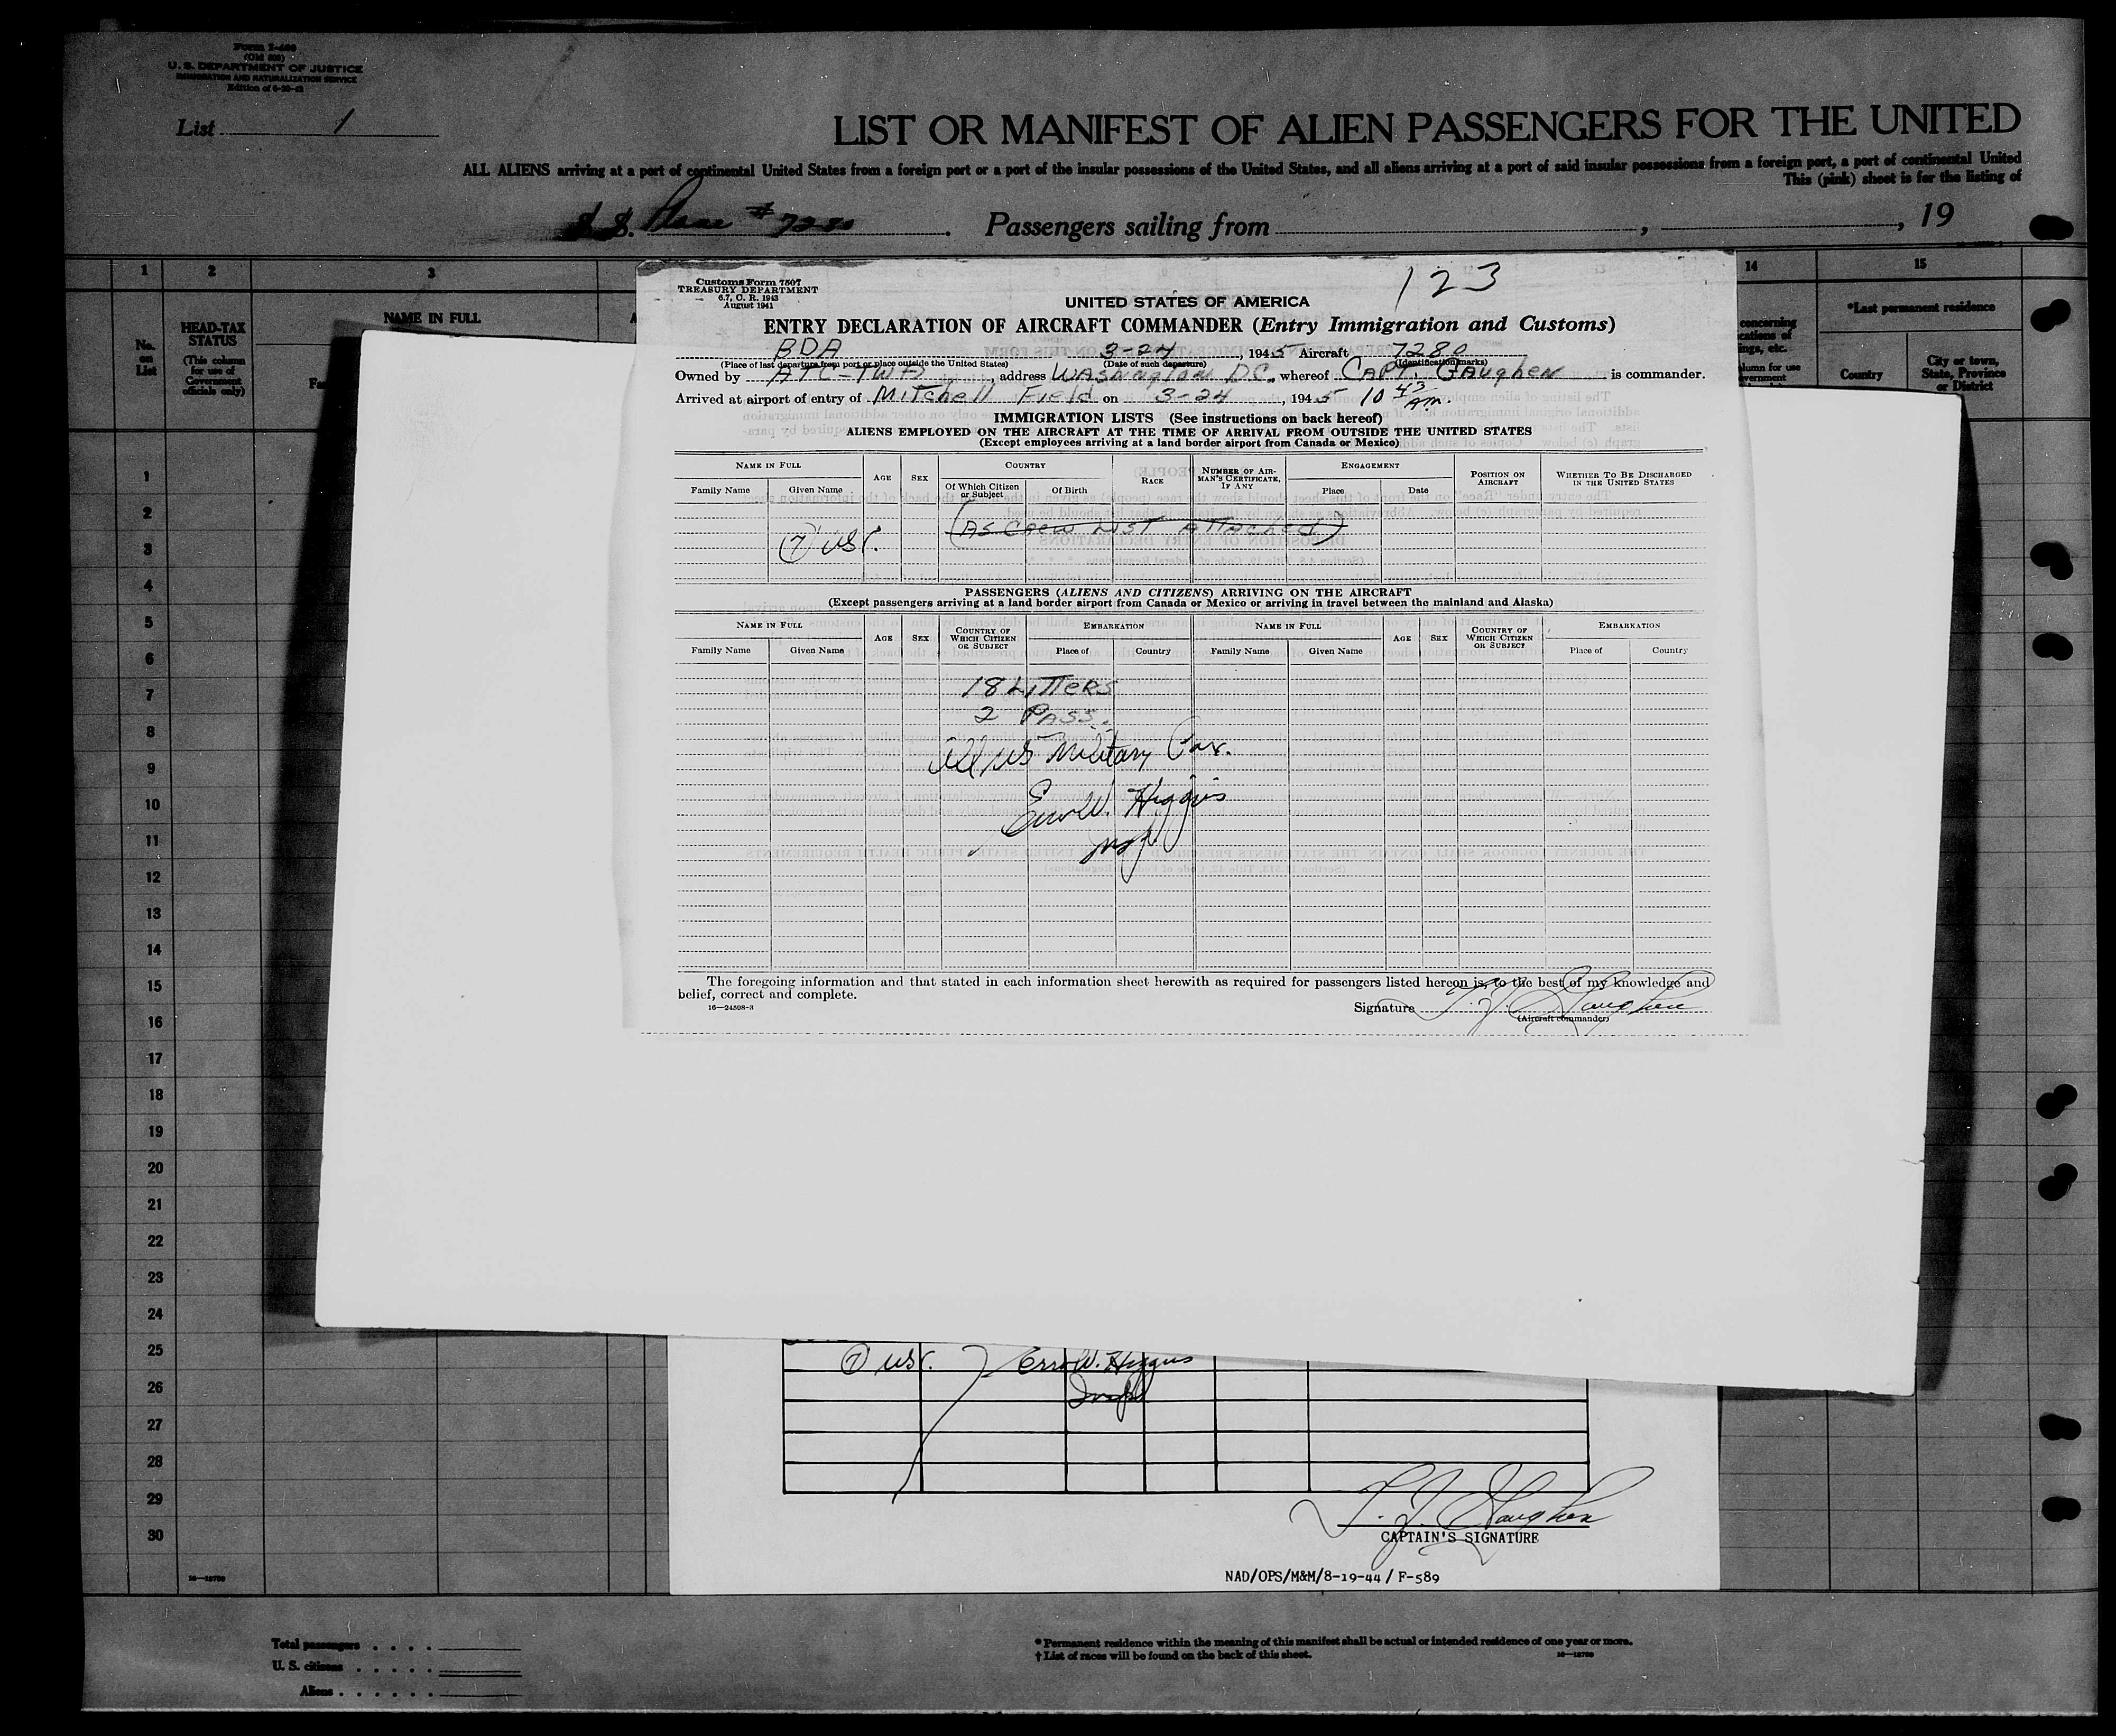 Form I-466
(OM 500)
U. S. DEPARTMENT OF JUSTICE
IMMIGRATION AND NATURALIZATION SERVICE
Edition of 6-30-42
List 1
LIST OR MANIFEST OF ALIEN PASSENGERS FOR THE UNITED
ALL ALIENS arriving at a port of continental United States from a foreign port or a port of the insular possessions of the United States, and all aliens arriving at a port of said insular possessions from a foreign port, a port of continental United
This (pink) sheet is for the listing of
S.S. Plane # 7280 . Passengers sailing from , , 19
1 2 3 14 15
No. on List
HEAD-TAX STATUS
(This column for use of Government officials only)
NAME IN FULL
*Last permanent residence
Country
City or town, State, Province or District
Customs Form 7507
TREASURY DEPARTMENT
6.7, C. R. 1943
August 1941
123
UNITED STATES OF AMERICA
ENTRY DECLARATION OF AIRCRAFT COMMANDER (Entry Immigration and Customs)
BDA 3-24, 1945 Aircraft 7280
(Place of last departure from port or place outside the United States) (Date of such departure) (Identification marks)
Owned by ATC-TWA, address Washington DC., whereof CAPT. Gaughen is commander.
Arrived at airport of entry of Mitchell Field on 3-24, 1945 10 43 AM.
IMMIGRATION LISTS (See instructions on back hereof)
ALIENS EMPLOYED ON THE AIRCRAFT AT THE TIME OF ARRIVAL FROM OUTSIDE THE UNITED STATES
(Except employees arriving at a land border airport from Canada or Mexico)
NAME IN FULL AGE SEX COUNTRY RACE NUMBER OF AIRMAN'S CERTIFICATE, IF ANY ENGAGEMENT POSITION ON AIRCRAFT WHETHER TO BE DISCHARGED IN THE UNITED STATES
Family Name Given Name Of Which Citizen or Subject Of Birth Place Date
(AS CREW LIST ATTACHED)
(7) USC.
PASSENGERS (ALIENS AND CITIZENS) ARRIVING ON THE AIRCRAFT
(Except passengers arriving at a land border airport from Canada or Mexico or arriving in travel between the mainland and Alaska)
NAME IN FULL AGE SEX COUNTRY OF WHICH CITIZEN OR SUBJECT EMBARKATION NAME IN FULL AGE SEX COUNTRY OF WHICH CITIZEN OR SUBJECT EMBARKATION
Family Name Given Name Place of Country Family Name Given Name Place of Country
18 Litters
2 Pass.
All US Military Pax.
Higgins
Insp.
The foregoing information and that stated in each information sheet herewith as required for passengers listed hereon is, to the best of my knowledge and
belief, correct and complete.
16—24508-3
Signature T. J. Gaughen
(Aircraft commander)
1
2
3
4
5
6
7
8
9
10
11
12
13
14
15
16
17
18
19
20
21
22
23
24
25
26
27
28
29
30
(7) USC. W. Higgins
Insp.
T. J. Gaughen
CAPTAIN'S SIGNATURE
NAD/OPS/M&M/8-19-44 / F-589
Total passengers . . . .
U. S. citizens . . . . .
Aliens . . . . . .
* Permanent residence within the meaning of this manifest shall be actual or intended residence of one year or more.
† List of races will be found on the back of this sheet.